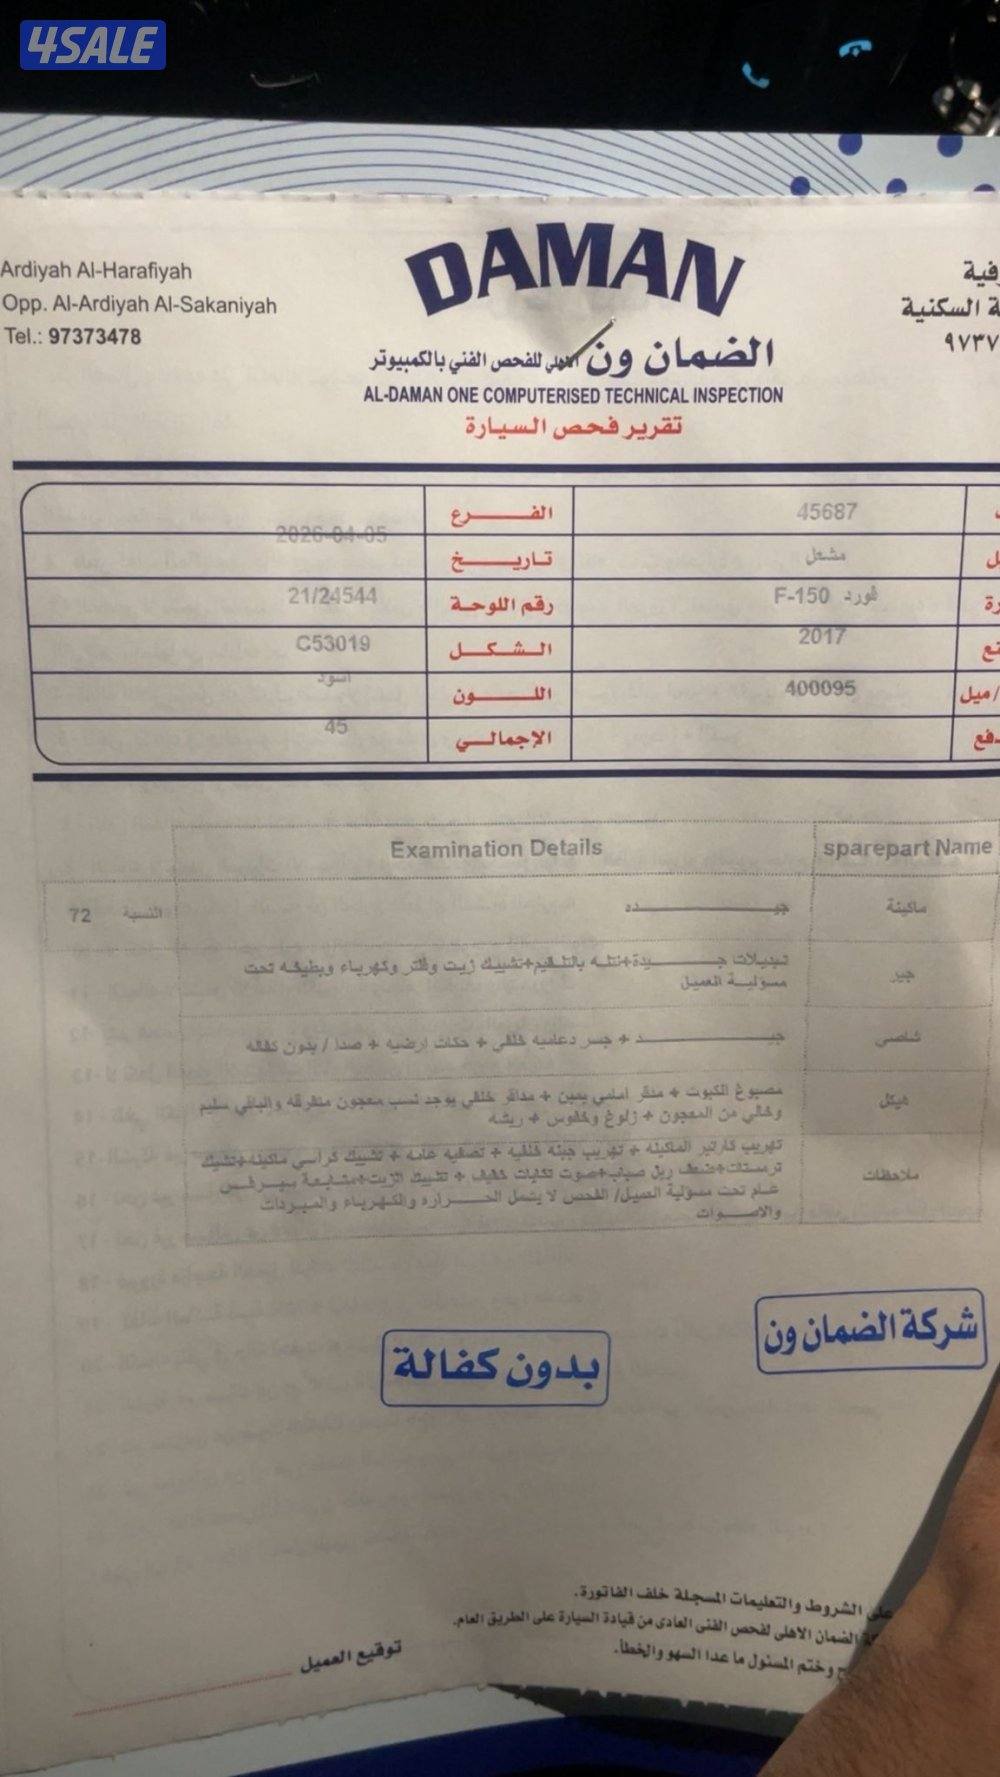 4SALE
DAMAN
Ardiyah Al-Harafiyah
Opp. Al-Ardiyah Al-Sakaniyah
Tel.: 97373478
السكنية
٩٧٣٧
الضمان ون الاهلي للفحص الفني بالكمبيوتر
AL-DAMAN ONE COMPUTERISED TECHNICAL INSPECTION
تقرير فحص السيارة
45687 الفرع
مشعل تاريخ 2026-04-05
فورد F-150 رقم اللوحة 21/24544
2017 الشكل C53019
/ميل 400095 اللون اسود
الإجمالي 45
sparepart Name Examination Details
ماكينة جيده النسبة 72
جير تبديلات جيدة+نتله بالتلقيم+تشييك زيت وفلتر وكهرباء وبطيفه تحت
مسؤلية العميل
شاصي جيد + جسر دعاميه خلفي + حكات ارضيه + صدا / بدون كفاله
هيكل مصبوغ الكبوت + منقر امامي يمين + مداقر خلفي يوجد نسب معجون متفرقه والباقي سليم
وخالي من المعجون + زلوغ وخفوس + ريشه
ملاحظات تهريب كارتير الماكينه + تهريب جبنه خلفيه + تصفيه عامه + تشييك كراسي ماكينه+تشيك
+صوت تكايات خفيف + تشييك الزيت+متابعة سيرفس
عام تحت مسؤلية العميل/ الفحص لا يشمل الحراره والكهرباء والمبردات
والاصوات
شركة الضمان ون
بدون كفالة
على الشروط والتعليمات المسجلة خلف الفاتورة.
الضمان الاهلي لفحص الفني العادي من قيادة السيارة على الطريق العام.
وختم المسئول ما عدا السهو والخطأ.
توقيع العميل